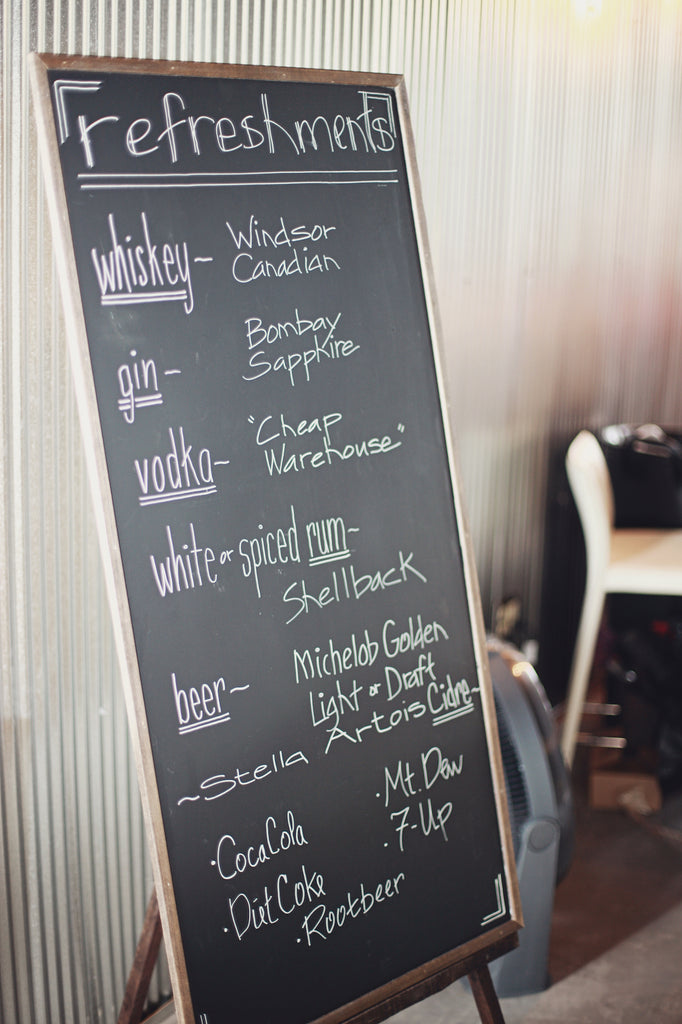 refreshments
whiskey~ Windsor
Canadian
gin~ Bombay
Sapphire
vodka~ "Cheap
Warehouse"
white or spiced rum~
Shellback
beer~ Michelob Golden
Light or Draft
~Stella Artois Cidre~
·CocaCola ·Mt. Dew
·Diet Coke ·7-Up
·Rootbeer